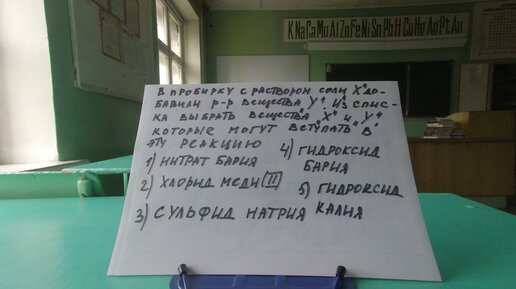 K Na Ca Mg Al Zn Fe Ni Sn Pb H Cu Hg Ag Pt Au
В ПРОБИРКУ С РАСТВОРОМ СОЛИ "X" ДО-
БАВИЛИ Р-Р ВЕЩЕСТВА "Y" ИЗ СПИС-
КА ВЫБРАТЬ ВЕЩЕСТВА "X" И "Y"
КОТОРЫЕ МОГУТ ВСТУПАТЬ В
ЭТУ РЕАКЦИЮ
1) НИТРАТ БАРИЯ
2) ХЛОРИД МЕДИ (II)
3) СУЛЬФИД НАТРИЯ
4) ГИДРОКСИД
БАРИЯ
5) ГИДРОКСИД
КАЛИЯ